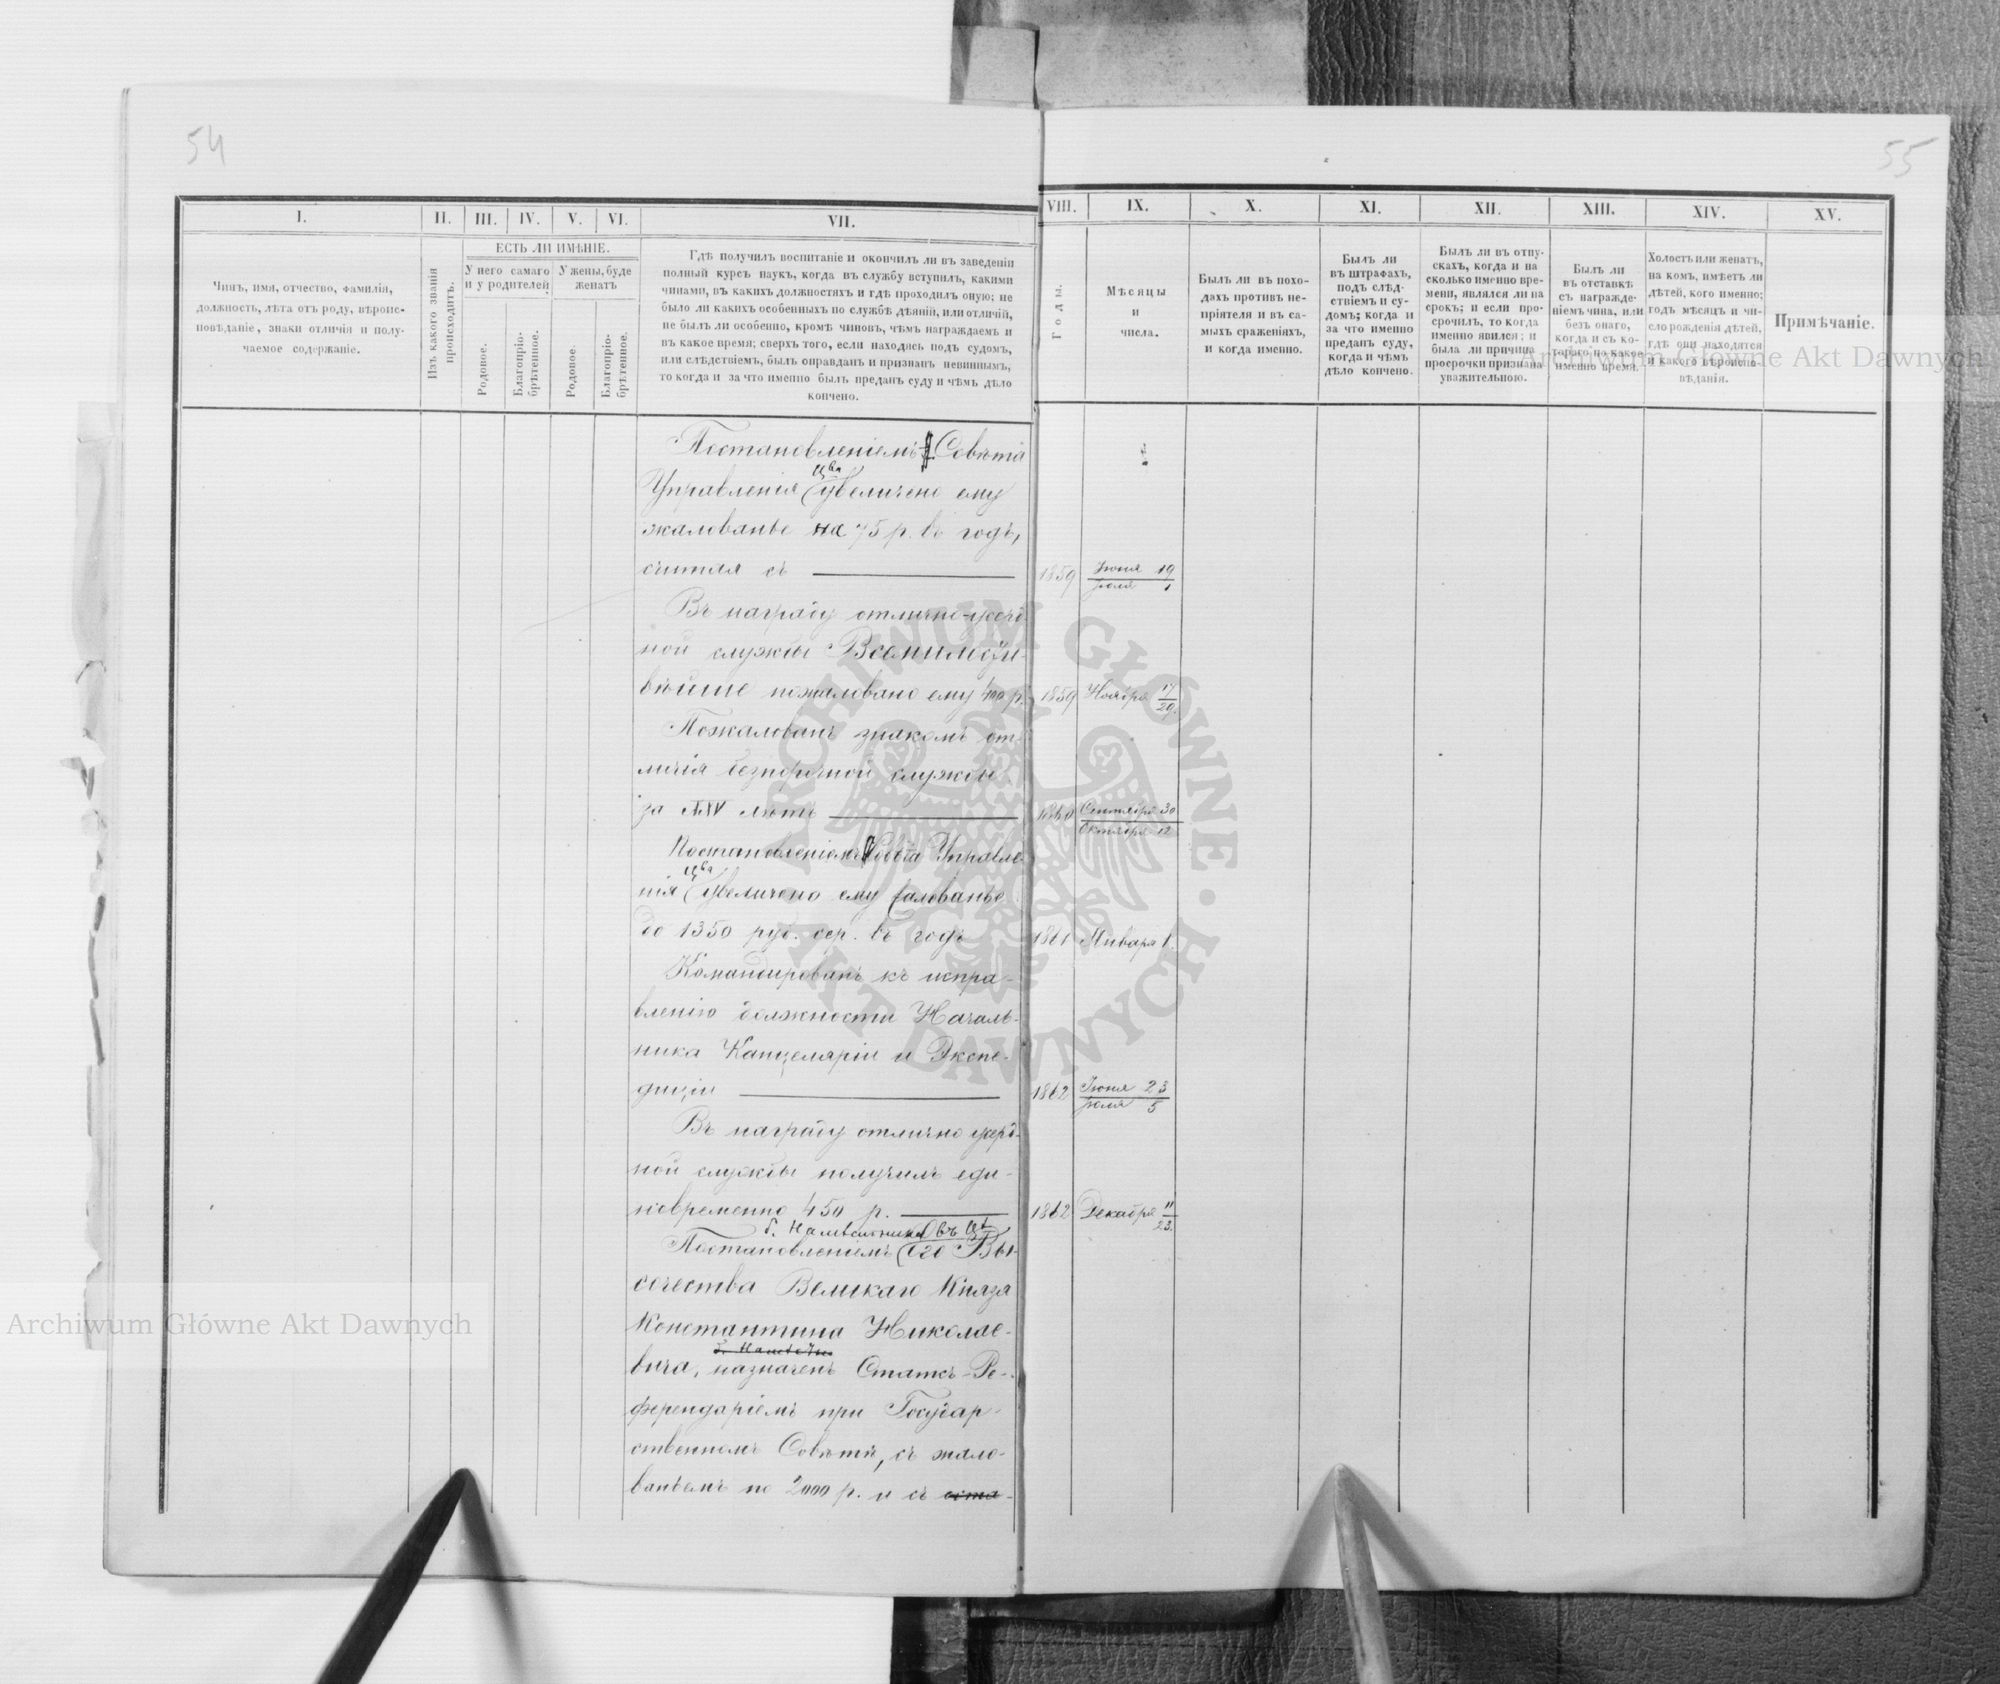 54
55
I.
II.
III.
IV.
V.
VI.
VII.
VIII.
IX.
X.
XI.
XII.
XIII.
XIV.
XV.
Чинъ, имя, отчество, фамилія,
должность, лѣта отъ роду, вѣроис-
повѣданіе, знаки отличія и полу-
чаемое содержаніе.
Изъ какого званія
происходитъ.
ЕСТЬ ЛИ ИМѢНІЕ.
У него самаго
и у родителей
У жены, буде
женатъ
Родовое.
Благопріо-
брѣтенное.
Родовое.
Благопріо-
брѣтенное.
Гдѣ получилъ воспитаніе и окончилъ ли въ заведеніи
полный курсъ наукъ, когда въ службу вступилъ, какими
чинами, въ какихъ должностяхъ и гдѣ проходилъ оную; не
было ли какихъ особенныхъ по службѣ дѣяній, или отличій,
не былъ ли особенно, кромѣ чиновъ, чѣмъ награждаемъ и
въ какое время; сверхъ того, если находясь подъ судомъ,
или слѣдствіемъ, былъ оправданъ и признанъ невиннымъ,
то когда и за что именно былъ преданъ суду и чѣмъ дѣло
кончено.
Годы.
Мѣсяцы
и
числа.
Былъ ли въ похо-
дахъ противъ не-
пріятеля и въ са-
мыхъ сраженіяхъ,
и когда именно.
Былъ ли
въ штрафахъ,
подъ слѣд-
ствіемъ и су-
домъ; когда и
за что именно
преданъ суду,
когда и чѣмъ
дѣло кончено.
Былъ ли въ отпу-
скахъ, когда и на
сколько именно вре-
мени, являлся ли на
срокъ; и если про-
срочилъ, то когда
именно явился; и
была ли причина
просрочки признана
уважительною.
Былъ ли
въ отставкѣ
съ награжде-
ніемъ чина, или
безъ онаго,
когда и съ ко-
тораго по какое
именно время.
Холостъ или женатъ,
на комъ, имѣетъ ли
дѣтей, кого именно;
годъ мѣсяцъ и чи-
сло рожденія дѣтей,
гдѣ они находятся
и какого вѣроиспо-
вѣданія.
Примѣчаніе.
Постановленіемъ Совѣта
Управленія увеличено ему
жалованье на 75 р. въ годъ,
считая съ
1859 Іюня 19
Іюля 1
Въ награду отлично-усерд-
ной службы Всемилости-
вѣйше пожаловано ему 400 р.
1859 Ноября 17
29.
Пожалованъ знакомъ от-
личія безпорочной службы
за XXV лѣтъ
1860 Сентября 30
Октября 12
Постановленіемъ Совѣта Управле-
нія увеличено ему жалованье
до 1350 руб. сер. въ годъ
1861 Января 1.
Командированъ къ испра-
вленію должности Началь-
ника Канцеляріи и Экспе-
диціи
1862 Іюня 23
Іюля 5
Въ награду отлично усерд-
ной службы получилъ еди-
новременно 450 р.
1862 Декабря 11
23.
б. Намѣстника въ
Постановленіемъ Его Вы-
сочества Великаго Князя
Константина Николае-
вича, назначенъ Статсъ-Ре-
ферендаріемъ при Государ-
ственномъ Совѣтѣ, съ жало-
ваньемъ по 2000 р. и съ
Archiwum Główne Akt Dawnych
Archiwum Główne Akt Dawnych
ARCHIWUM GŁÓWNE · AKT DAWNYCH ·